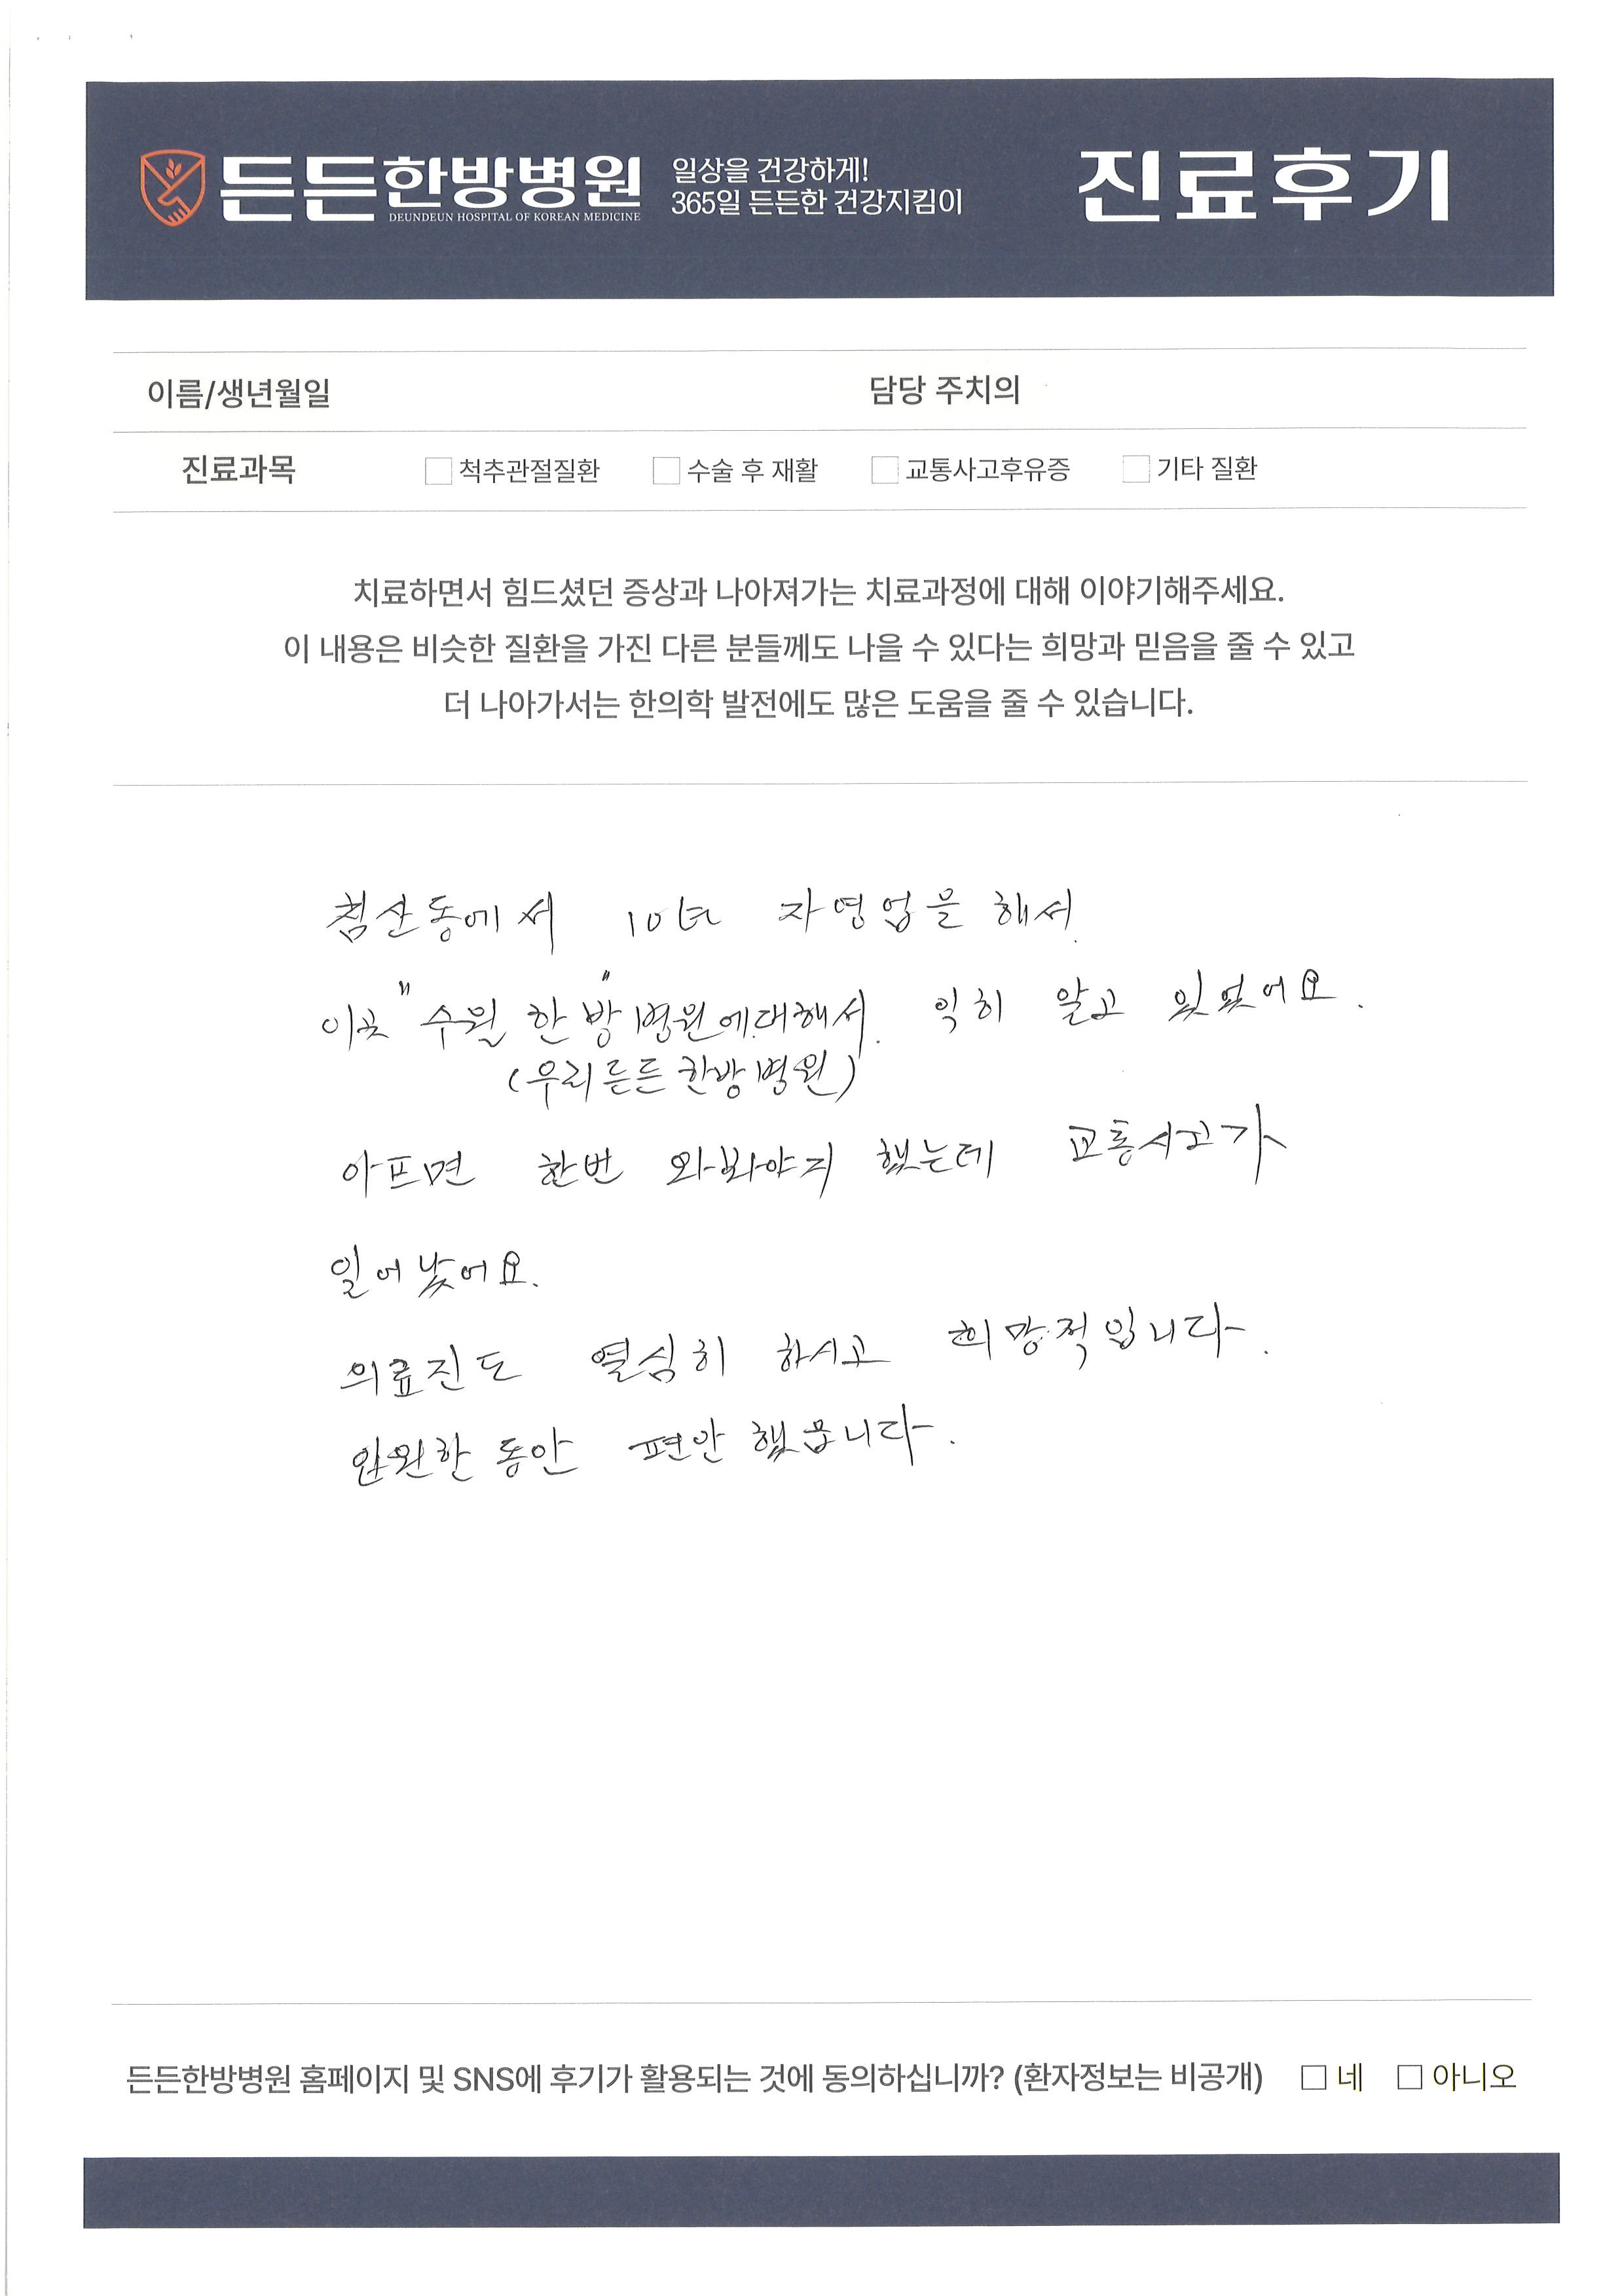 든든한방병원
DEUNDEUN HOSPITAL OF KOREAN MEDICINE
일상을 건강하게!
365일 든든한 건강지킴이
진료후기
이름/생년월일 담당 주치의
진료과목 □ 척추관절질환 □ 수술 후 재활 □ 교통사고후유증 □ 기타 질환
치료하면서 힘드셨던 증상과 나아져가는 치료과정에 대해 이야기해주세요.
이 내용은 비슷한 질환을 가진 다른 분들께도 나을 수 있다는 희망과 믿음을 줄 수 있고
더 나아가서는 한의학 발전에도 많은 도움을 줄 수 있습니다.
침산동에서 10년 자영업을 해서
이곳 "수월 한방"병원에대해서. 익히 알고 있었어요.
(우리든든한방병원)
아프면 한번 와봐야지 했는데 교통사고가
일어났어요.
의료진도 열심히 하시고 희망적입니다.
입원한 동안 편안했읍니다.
든든한방병원 홈페이지 및 SNS에 후기가 활용되는 것에 동의하십니까? (환자정보는 비공개) □ 네 □ 아니오